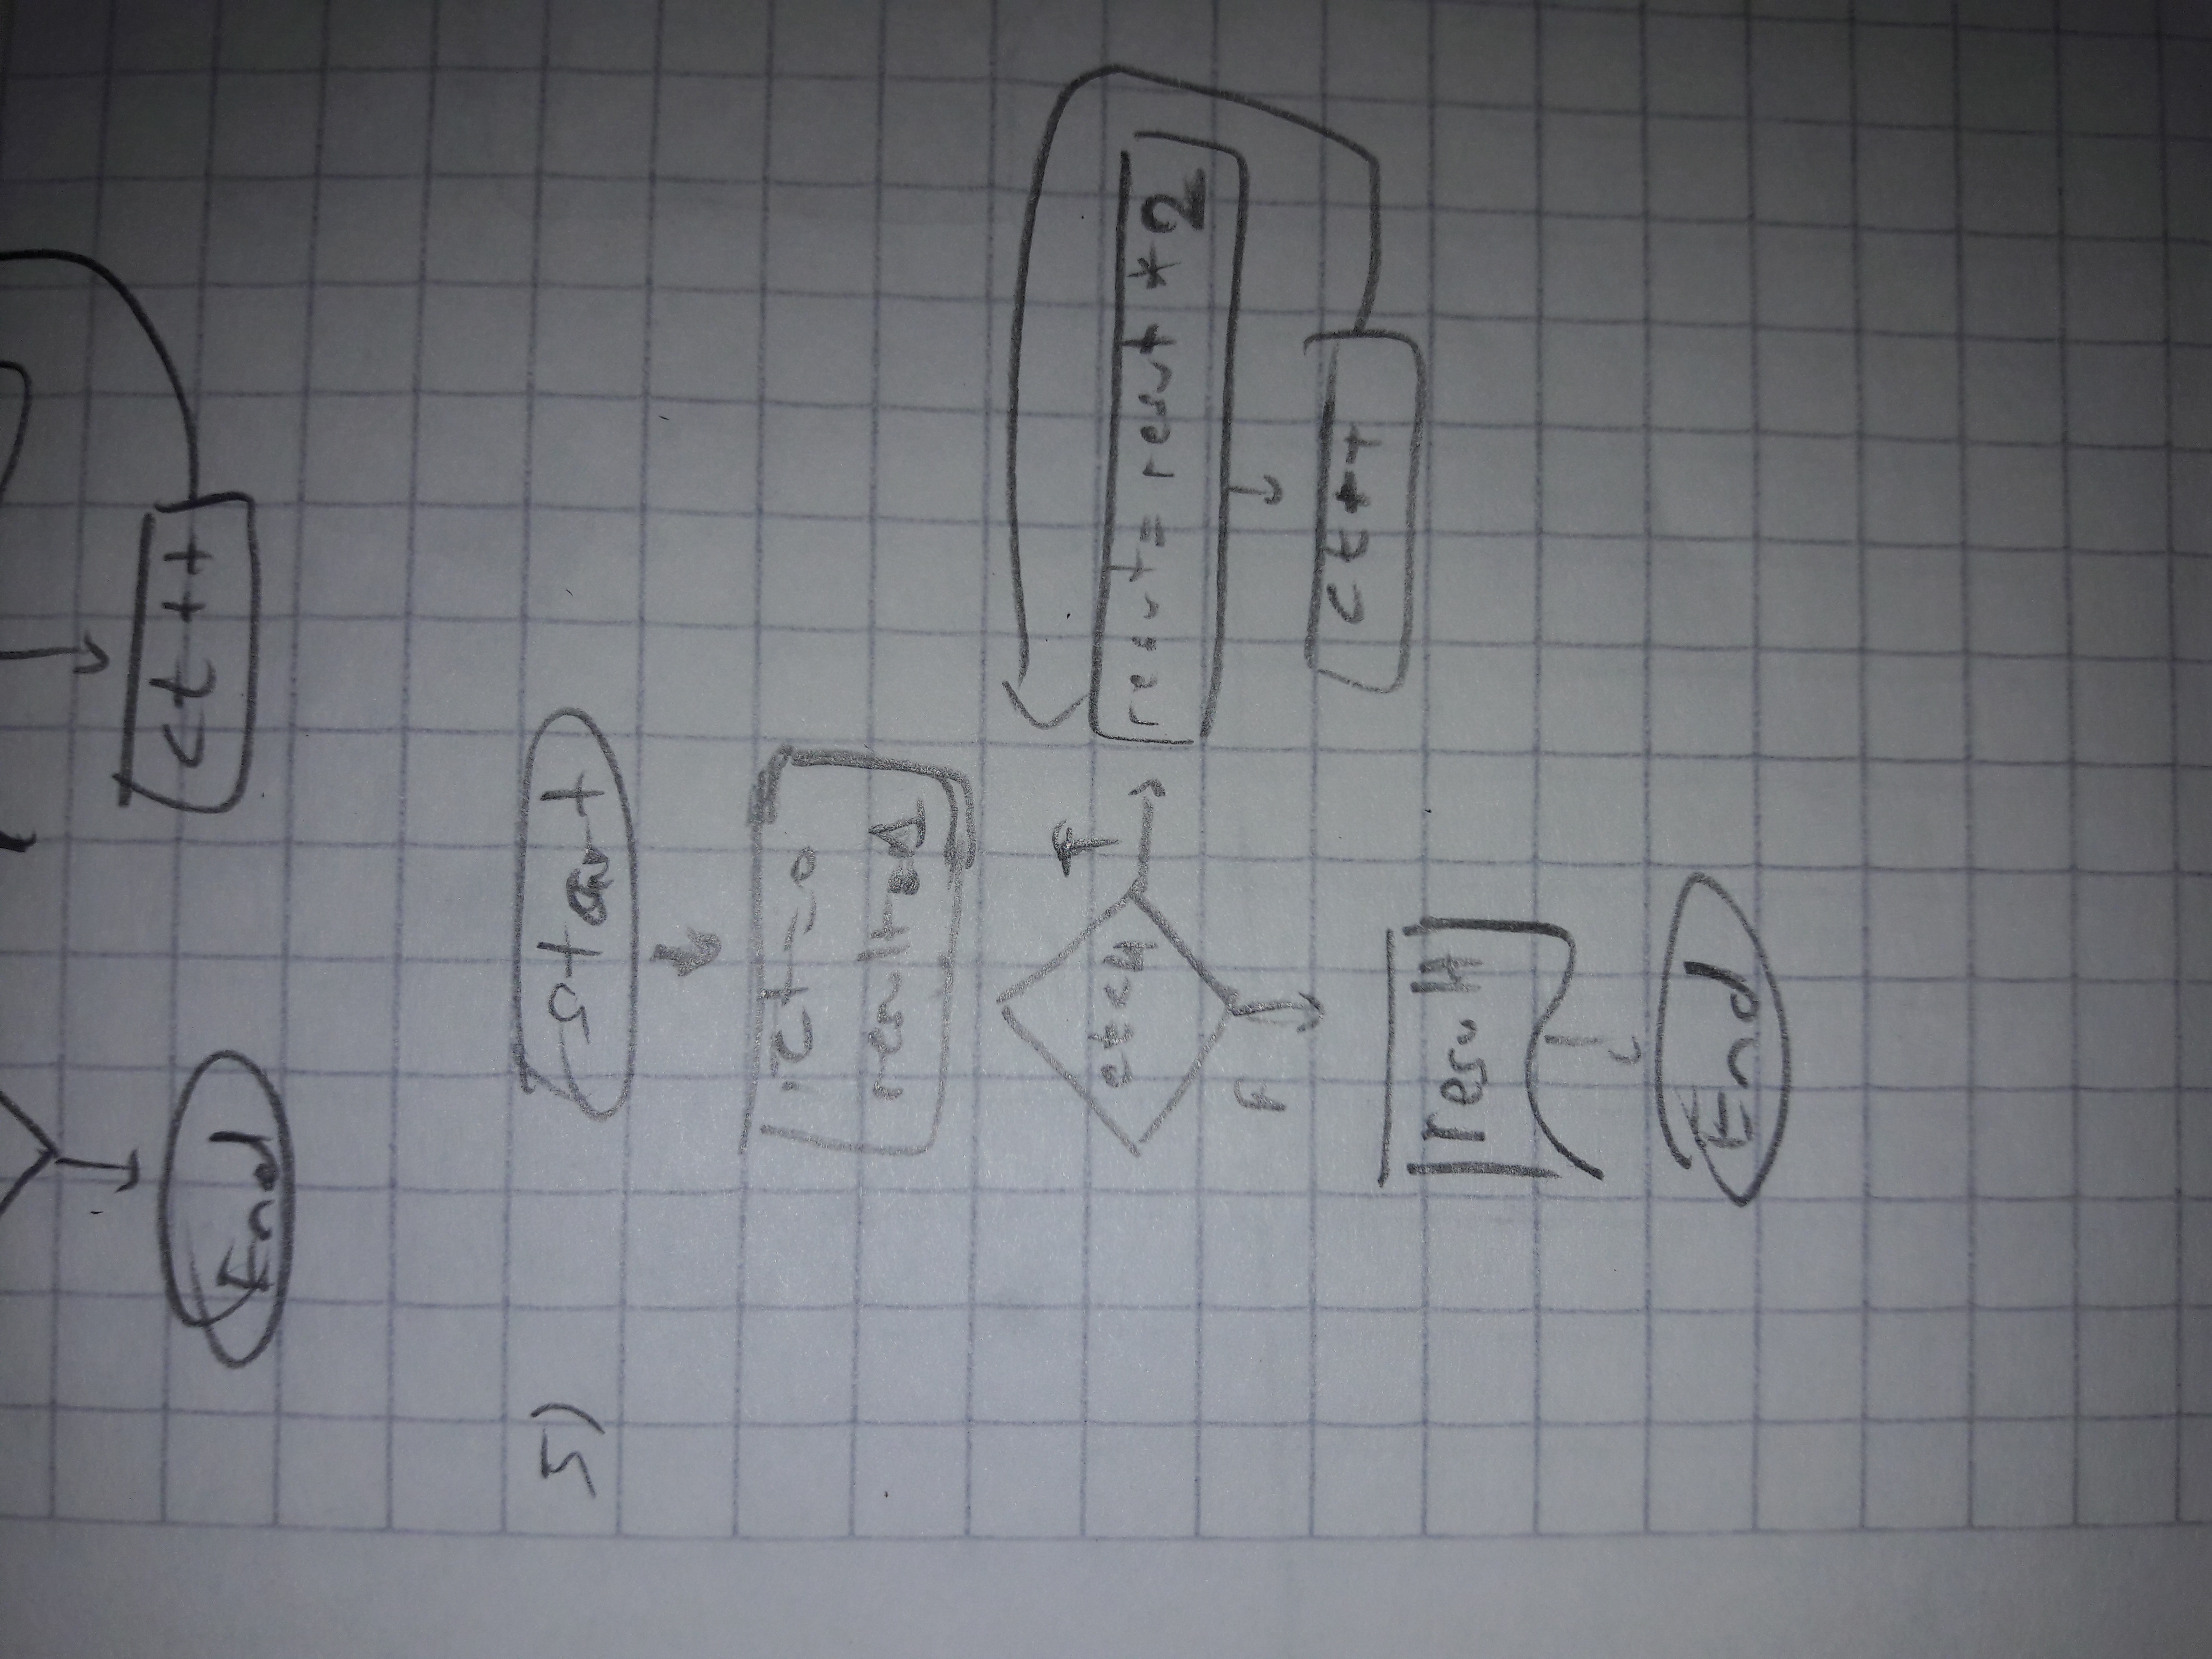 End
ct ++
5)
Start
ct=0
result=1
ct<4
T
resut= resut * 2
F
ct++
result
End